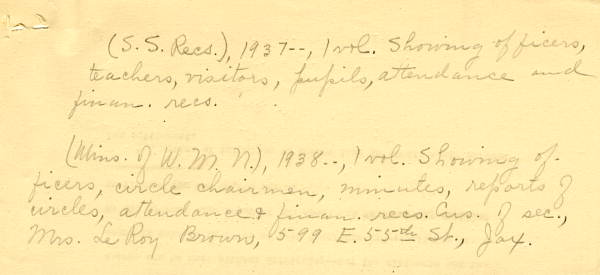 (S. S. Recs.), 1937--, 1 vol. Showing officers,
teachers, visitors, pupils, attendance and
finan. recs.
(Mins. of W. M. U.), 1938--, 1 vol. Showing of-
ficers, circle chairmen, minutes, reports of
circles, attendance & finan. recs. Cus. of sec.,
Mrs. Le Roy Brown, 599 E. 55th St., Jax.